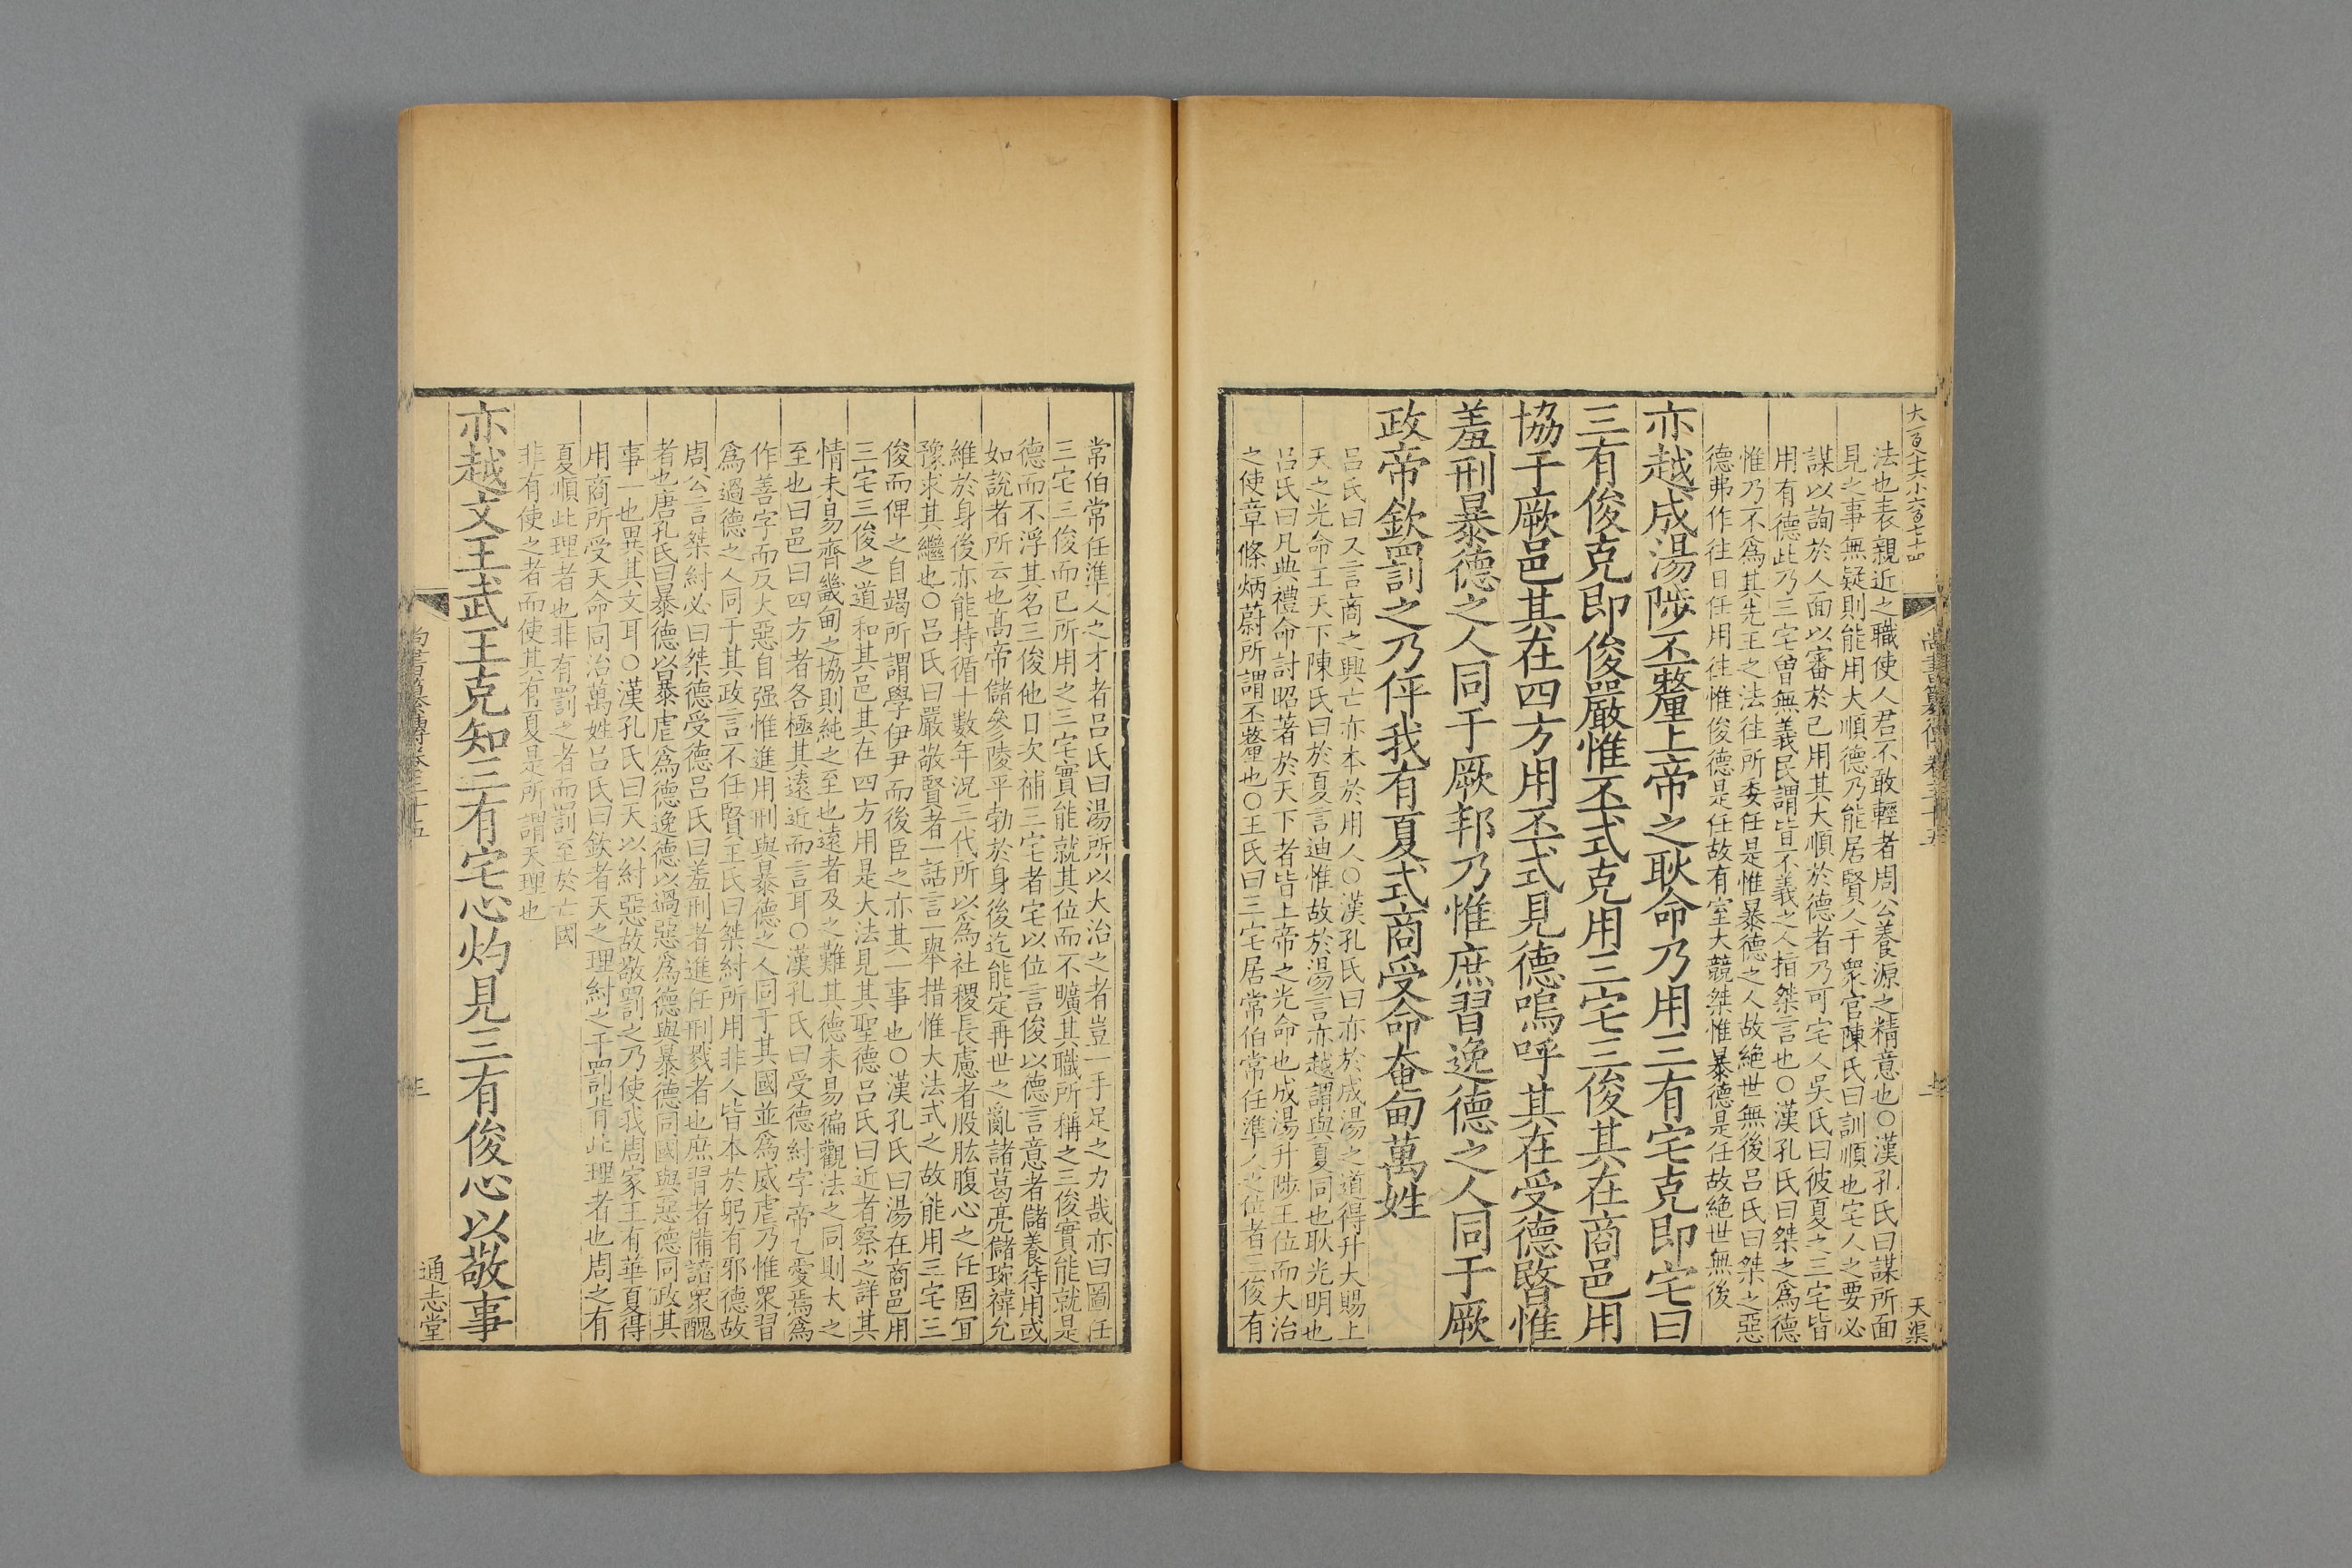 大一百八十六小六百七十四
天渠
法也表親近之職使人君不敢輕者周公養源之精意也○漢孔氏曰謀所面
見之事無疑則能用大順德乃能居賢人于衆官陳氏曰訓順也宅人之要必
謀以詢於人面以審於己用其大順於德者乃可宅人吳氏曰彼夏之三宅皆
用有德此乃三宅曾無義民謂皆不義之人指桀言也○漢孔氏曰桀之爲德
惟乃不爲其先王之法往所委任是惟暴德之人故絶世無後呂氏曰桀之惡
德弗作往日任用往惟俊德是任故有室大競桀惟暴德是任故絶世無後
亦越成湯陟丕釐上帝之耿命乃用三有宅克即宅曰
三有俊克即俊嚴惟丕式克用三宅三俊其在商邑用
協于厥邑其在四方用丕式見德嗚呼其在受德暋惟
羞刑暴德之人同于厥邦乃惟庶習逸德之人同于厥
政帝欽罰之乃伻我有夏式商受命奄甸萬姓
呂氏曰又言商之興亡亦本於用人○漢孔氏曰亦於成湯之道得升大賜上
天之光命王天下陳氏曰於夏言迪惟故於湯言亦越謂與夏同也耿光明也
呂氏曰凡典禮命討昭著於天下者皆上帝之光命也成湯升陟王位而大治
之使章條炳蔚所謂丕釐也○王氏曰三宅居常伯常任準人之位者三俊有
常伯常任準人之才者呂氏曰湯所以大治之者豈一手足之力哉亦曰圖任
三宅三俊而已所用之三宅實能就其位而不曠其職所稱之三俊實能就是
德而不浮其名三俊他日次補三宅者宅以位言俊以德言意者儲養待用或
如說者所云也高帝儲參陵平勃於身後迄能定再世之亂諸葛亮儲琬禕允
維於身後亦能持循十數年況三代所以爲社稷長慮者股肱腹心之任固宜
豫求其繼也○呂氏曰嚴敬賢者一話言一舉措惟大法式之故能用三宅三
俊而俾之自竭所謂學伊尹而後臣之亦其一事也○漢孔氏曰湯在商邑用
三宅三俊之道和其邑其在四方用是大法見其聖德呂氏曰近者察之詳其
情未易齊畿甸之協則純之至也遠者及之難其德未易徧觀法之同則大之
至也曰邑曰四方者各極其遠近而言耳○漢孔氏曰受德紂字帝乙愛焉爲
作善字而反大惡自强惟進用刑與暴德之人同于其國並爲威虐乃惟衆習
爲過德之人同于其政言不任賢王氏曰桀紂所用非人皆本於躬有邪德故
周公言桀紂必曰桀德受德呂氏曰羞刑者進任刑戮者也庶習者備諳衆醜
者也唐孔氏曰暴德以暴虐爲德逸德以過惡爲德與暴德同國與惡德同政其
事一也異其文耳○漢孔氏曰天以紂惡故敬罰之乃使我周家王有華夏得
用商所受天命同治萬姓呂氏曰欽者天之理紂之干罰背此理者也周之有
夏順此理者也非有罰之者而罰至於亡國
非有使之者而使其有夏是所謂天理也
亦越文王武王克知三有宅心灼見三有俊心以敬事
尚書纂傳卷三十五
三
通志堂